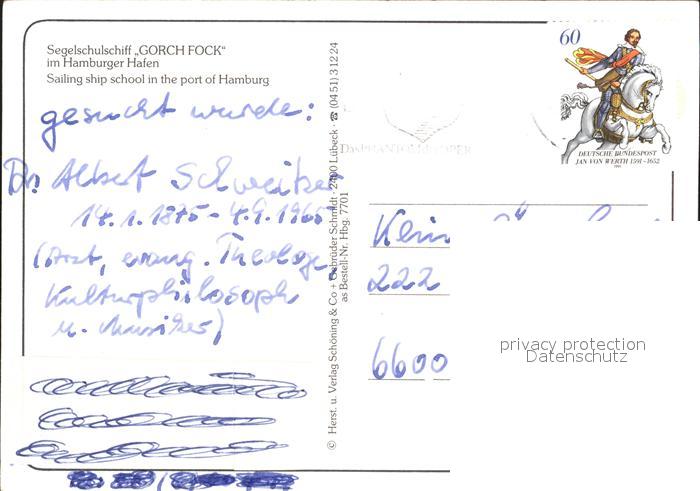 Segelschulschiff „GORCH FOCK“
im Hamburger Hafen
Sailing ship school in the port of Hamburg
gesucht wurde:
Dr. Albert Schweitzer
14.1.1875 - 4.9.1965
(Arzt, evang. Theologe,
Kulturphilosoph
u. Musiker)
© Herst. u. Verlag Schöning & Co + Gebrüder Schmidt · 2400 Lübeck · ☎ (0451) 31224
as Bestell-Nr. Hbg. 7701
DAS PHANTOM DER OPER
60
DEUTSCHE BUNDESPOST
JAN VON WERTH 1591-1652
1991
Klein
222
6600
privacy protection
Datenschutz